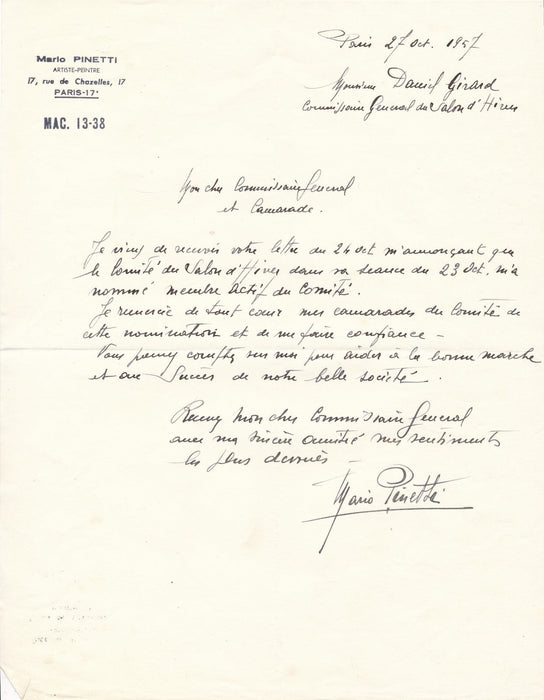 Mario PINETTI
ARTISTE-PEINTRE
17, rue de Chazelles, 17
PARIS-17ᵉ
MAC. 13-38
Paris 27 Oct. 1957
Monsieur Daniel Girard
Commissaire General du Salon d'Hiver
Mon cher Commissaire General
et Camarade.
Je viens de recevoir votre lettre du 24 Oct m'annonçant que
le Comité du Salon d'Hiver dans sa seance du 23 Oct. m'a
nommé membre Actif du Comité.
Je remercie de tout cœur mes camarades du Comité de
cette nomination et de me faire confiance –
Vous pouvez compter sur moi pour aider à la bonne marche
et au Succès de notre belle société.
Recevez mon cher Commissaire General
avec ma sincère amitié mes sentiments
les plus devoués –
Mario Pinetti